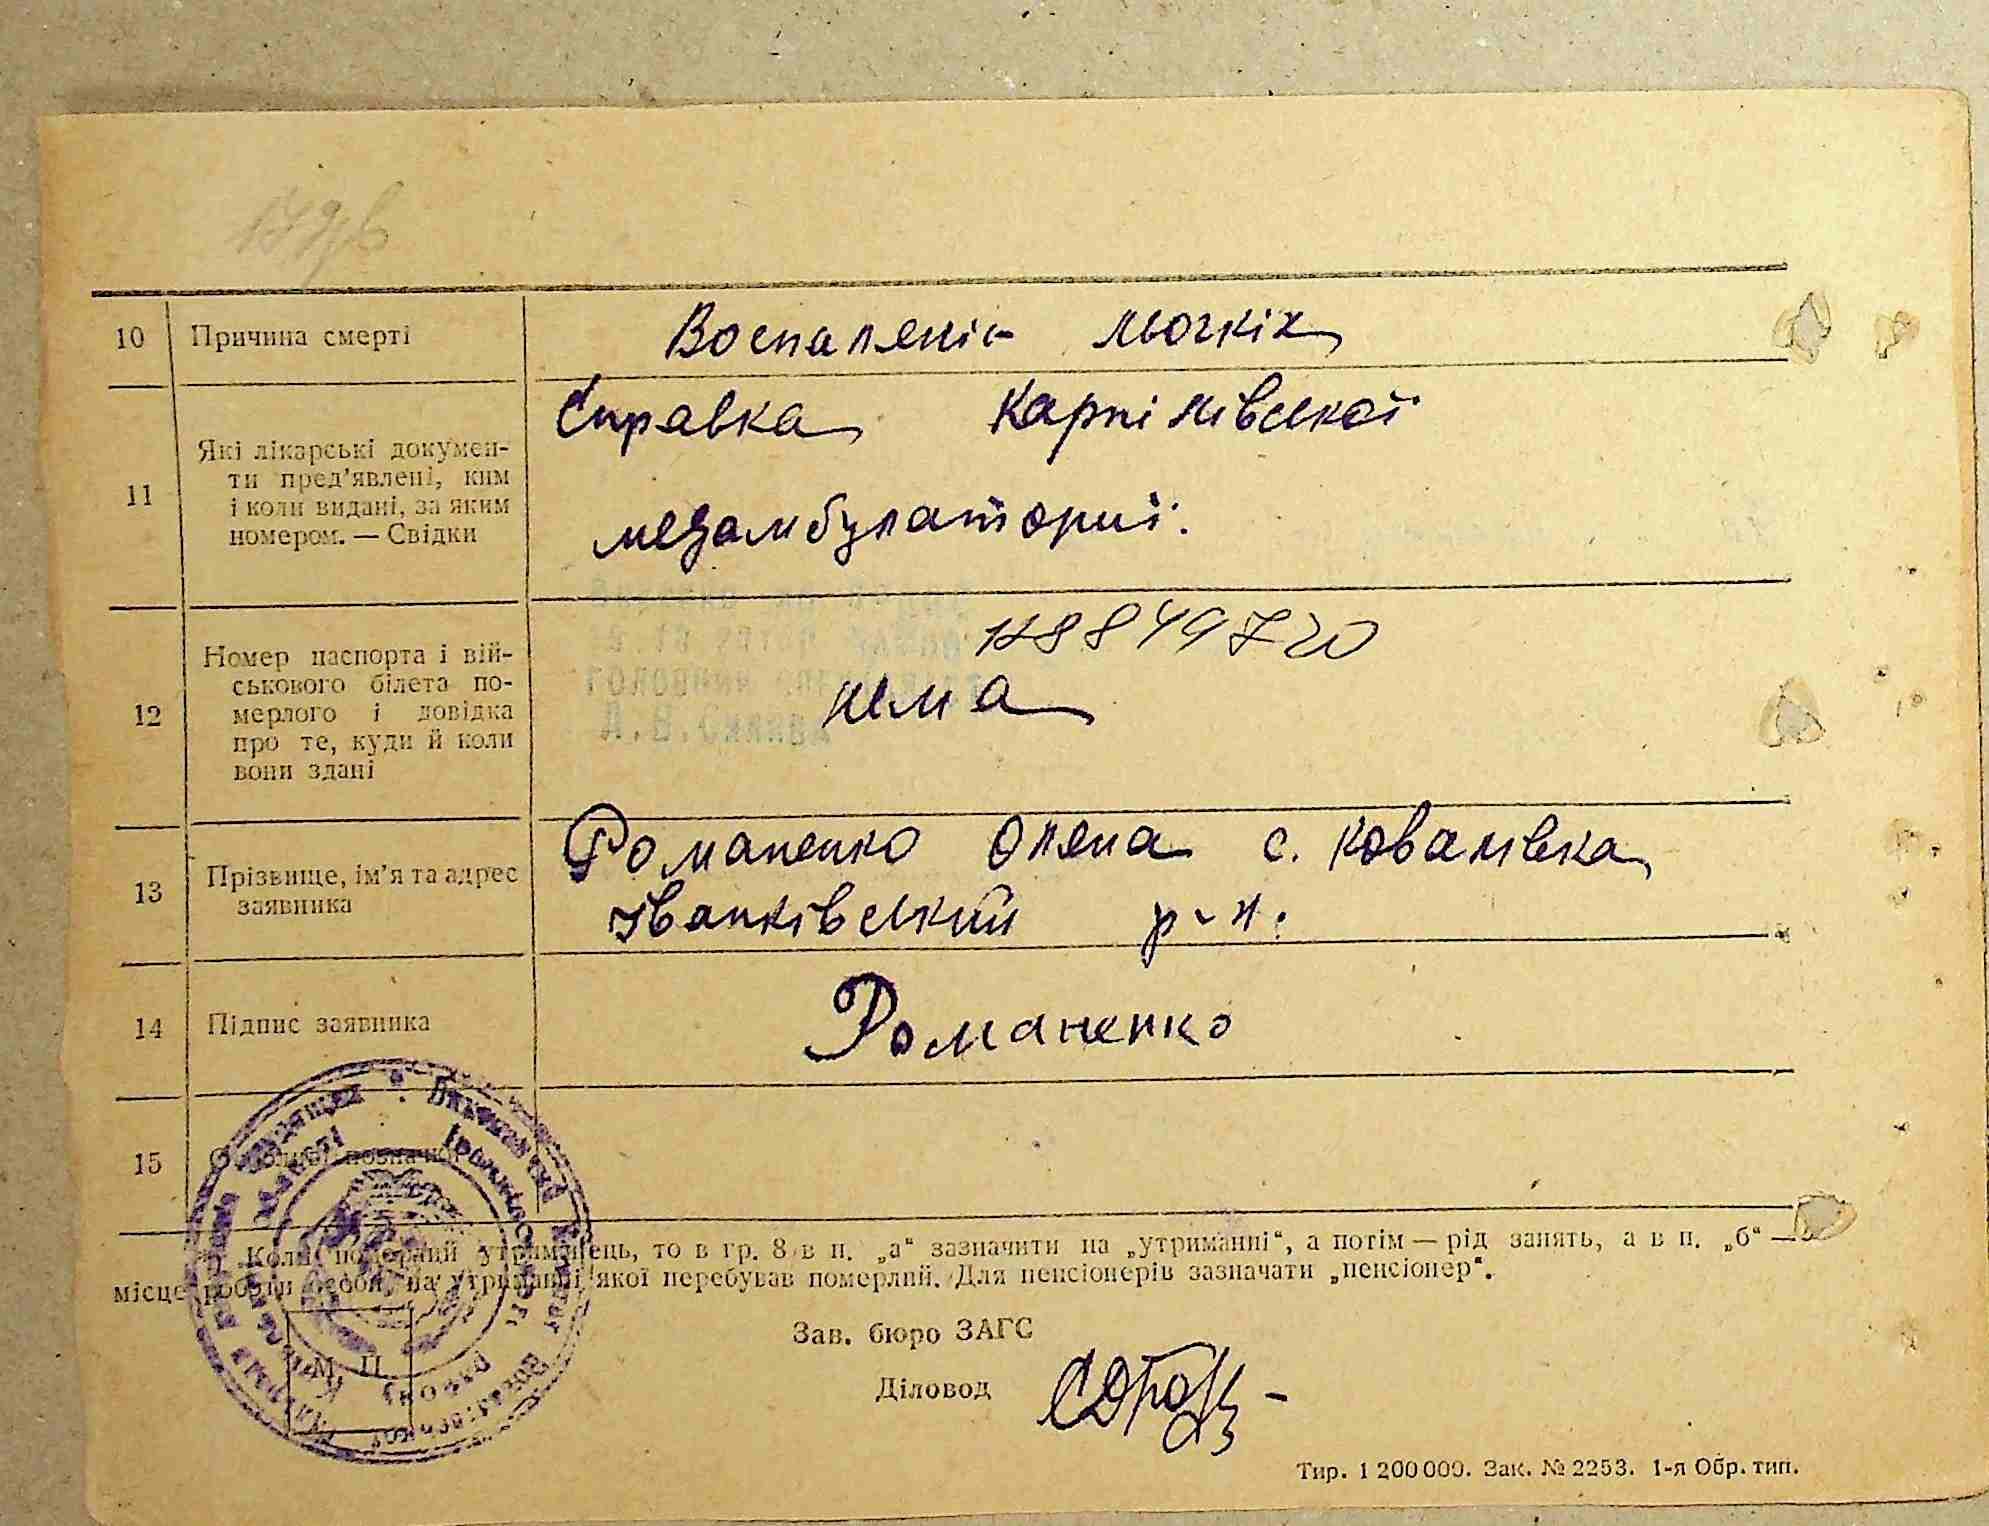 10 Причина смерті
Воспаленіє льогкіх
11 Які лікарські докумен-
ти пред'явлені, ким
і коли видані, за яким
номером. — Свідки
Справка Карпілівської
медамбулаторії.
12 Номер паспорта і вій-
ськового білета по-
мерлого і довідка
про те, куди й коли
вони здані
нема
13 Прізвище, ім'я та адрес
заявника
Романенко Олена с. Ковалівка
Іванківський р-н.
14 Підпис заявника
Романенко
15 Особливі позначки
„Коли померлий утриманець, то в гр. 8 в п. „а“ зазначити на „утриманні“, а потім — рід занять, а в п. „б“ —
місце роботи особи, на утриманні якої перебував померлий. Для пенсіонерів зазначати „пенсіонер“.
Зав. бюро ЗАГС
М П
Діловод
Тир. 1 200 000. Зак. № 2253. 1-я Обр. тип.